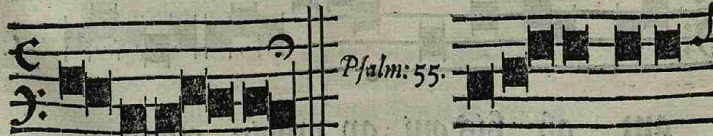 Psalm: 55.